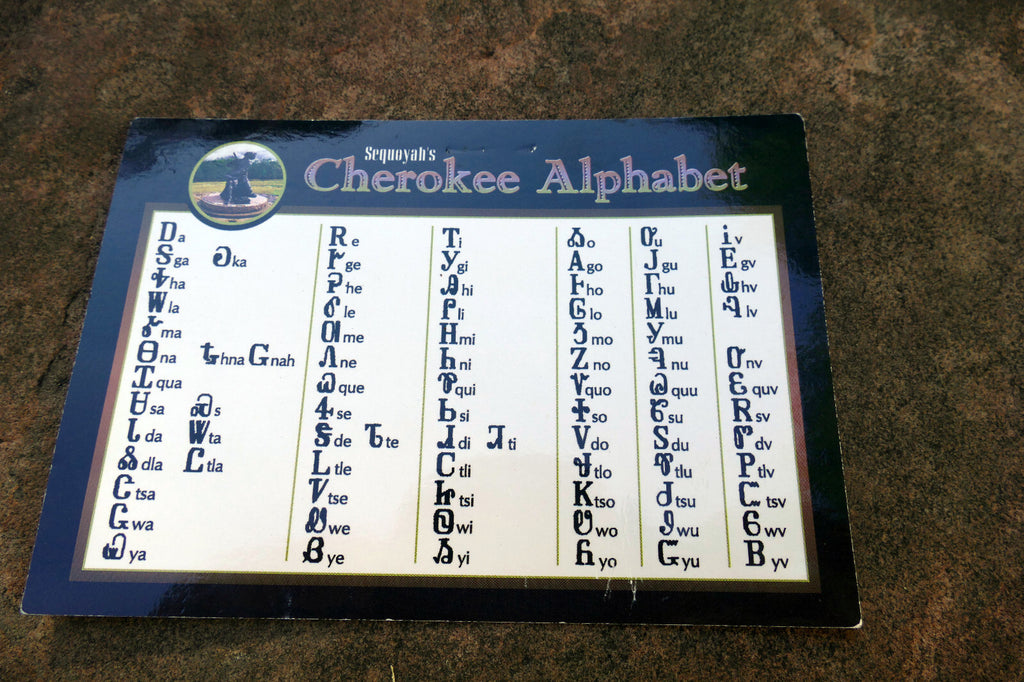 Sequoyah's
Cherokee Alphabet
Ꭰ a Ꭱ e Ꭲ i Ꭳ o Ꭴ u Ꭵ v
Ꭶ ga Ꭷ ka Ꭸ ge Ꭹ gi Ꭺ go Ꭻ gu Ꭼ gv
Ꭽ ha Ꭾ he Ꭿ hi Ꮀ ho Ꮁ hu Ꮂ hv
Ꮃ la Ꮄ le Ꮅ li Ꮆ lo Ꮇ lu Ꮈ lv
Ꮉ ma Ꮊ me Ꮋ mi Ꮌ mo Ꮍ mu
Ꮎ na Ꮏ hna Ꮐ nah Ꮑ ne Ꮒ ni Ꮓ no Ꮔ nu Ꮕ nv
Ꮖ qua Ꮗ que Ꮘ qui Ꮙ quo Ꮚ quu Ꮛ quv
Ꮜ sa Ꮝ s Ꮞ se Ꮟ si Ꮠ so Ꮡ su Ꮢ sv
Ꮣ da Ꮤ ta Ꮥ de Ꮦ te Ꮧ di Ꮨ ti Ꮩ do Ꮪ du Ꮫ dv
Ꮬ dla Ꮭ tla Ꮮ tle Ꮯ tli Ꮰ tlo Ꮱ tlu Ꮲ tlv
Ꮳ tsa Ꮴ tse Ꮵ tsi Ꮶ tso Ꮷ tsu Ꮸ tsv
Ꮹ wa Ꮺ we Ꮻ wi Ꮼ wo Ꮽ wu Ꮾ wv
Ꮿ ya Ᏸ ye Ᏹ yi Ᏺ yo Ᏻ yu Ᏼ yv